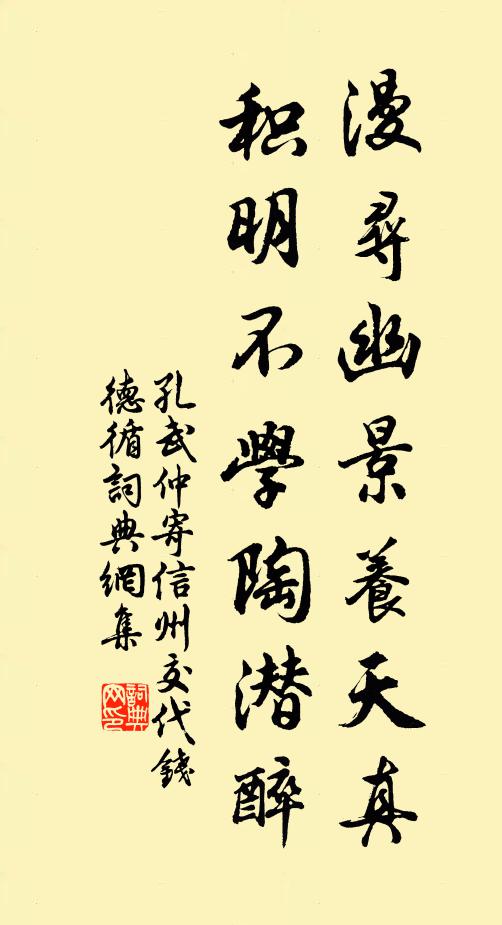 漫尋幽景養天真
积明不學陶潜醉
孔武仲寄信州交代錢
德循詞典網集
詞典
网印